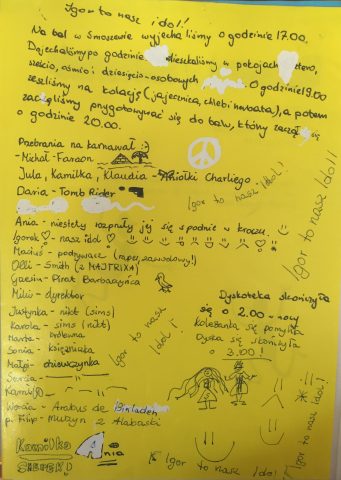 Igor to nasz idol!
Na bal w Smoszewie wyjechaliśmy o godzinie 17.00.
Dojechaliśmy po godzinie mieszkaliśmy w pokojach cztero,
sześcio, ośmio i dziesięcio-osobowych O godzinie 19.00
zeszliśmy na kolację (jajecznica, chleb i herbata), a potem
zaczęliśmy przygotowywać się do balu, który zaczął się
o godzinie 20.00.
Przebrania na karnawał :)
-Michał- Faraon
Jula, Kamilka, Klaudia - Aniołki Charliego
Daria - Tomb Rider
Igor to nasz Idol!
Ania - niestety rozpruły jej się spodnie w kroczu.
Igorek - nasz idol
- podrywacz (raper, zawodowy!)
Olli - Smith (z MATRIXA)
- Pirat Barbarzyńca
Milu - dyrektor
Justynka - nikt (sims)
Karola - sims (nikt)
Marta - Królowa
Sonia - księżniczka
Małgo - dziewczynka
Kamil
- Arabus de Binladen
p. Filip - murzyn z Alabaski
Dyskoteka skończyła
się o 2.00 w nocy
Koleżanka się pomyliła
Dyska się skończyła
o 3.00!
Igor to nasz Idol!
Igor to nasz Idol!!
Igor to nasz Idol!
Igor to nasz Idol!
Igor to nasz Idol!
Kamilka
Ania
Igor to nasz Idol!